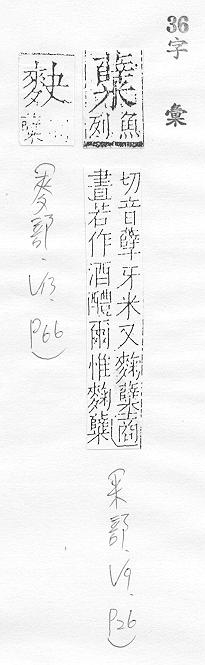 36
字
彙
糵
魚
列
切音孽牙米又麴糵商
書若作酒醴爾惟麴糵
(米部.V9.P26)
(麥部.V13.P66)